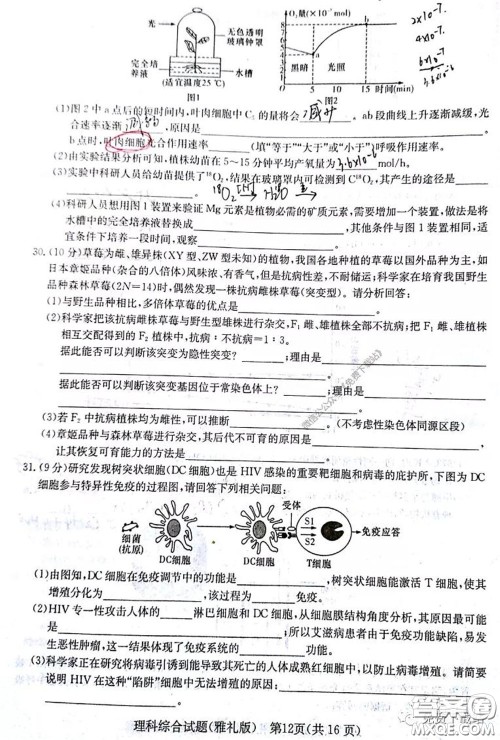 光
无色透明
玻璃钟罩
完全培
养液
水槽
(适宜温度25 ℃)
图1
O₂量(×10⁻⁷mol)
8
7
6
5
4
3
2
1
0
a
b
黑暗
光照
5
10
15 时间(min)
图2
2×10⁻⁷
4×10⁻⁷
6×10⁻⁷
3.6×10⁻⁶
(1)图2中a点后的短时间内,叶肉细胞中C₃的量将会 减少 。ab段曲线上升逐渐减缓,光
合速率逐渐 ,原因是
b点时,叶肉细胞光合作用速率 (填“等于”“大于”或“小于”)呼吸作用速率。
(2)由实验结果分析可知,植株幼苗在5～15分钟平均产氧量为 3.6×10⁻⁶ mol/h。
(3)实验中科研人员给幼苗提供了¹⁸O₂,结果在玻璃罩内可检测到C¹⁸O₂,其产生的途径是
¹⁸O₂ [H]→ H₂¹⁸O →
(4)科研人员想用图1装置来验证Mg元素是植物必需的矿质元素,需要增加一个装置,做法是将
水槽中的完全培养液替换成 ,其他条件与图1装置相同,适
宜条件下培养一段时间,观察
30.(10分)草莓为雌、雄异株(XY型、ZW型未知)的植物,我国各地种植的草莓以国外品种为主,如
日本章姬品种(杂合的八倍体)风味浓、有香气,但是抗病性差,不耐储运;科学家在培育我国野生
品种森林草莓(2N=14)时,偶然发现一株抗病雌株草莓(突变型)。请分析回答:
(1)与野生品种相比,多倍体草莓的优点是
(2)科学家把该抗病雌株草莓与野生型雄株进行杂交,F₁雌、雄植株全部不抗病;把F₁雌、雄植株
相互交配得到的F₂植株中,抗病:不抗病=1:3。
据此能否可以判断该突变为隐性突变? ;理由是
。
据此能否可以判断该突变基因位于常染色体上? ;理由是
。
(3)若F₂中抗病植株均为雌性,可以推测 。(不考虑性染色体同源区段)
(4)章姬品种与森林草莓进行杂交,其后代不可育的原因是
,其后代可以通过 进行改良。
31.(9分)研究发现树突状细胞(DC细胞)也是HIV感染的重要靶细胞和病毒的庇护所,下图为DC
细胞参与特异性免疫的过程图,请回答下列相关问题:
细菌
(抗原)
DC细胞
DC细胞
受体
S1
S2
T细胞
免疫应答
(1)由图知,DC细胞在免疫调节中的功能是 ,树突状细胞能激活T细胞,使其
增殖分化为 ,该过程为 免疫。
(2)HIV专一性攻击人体的 淋巴细胞和DC细胞,从细胞膜结构角度分析,其原因最可能
是 。所以艾滋病患者由于免疫功能缺陷,易发
生恶性肿瘤,这一结果体现了免疫系统的 功能。
(3)科学家正在研究将病毒引诱到能导致其死亡的人体成熟红细胞中,以防止病毒增殖。请简要
说明HIV在这种“陷阱”细胞中无法增殖的原因: 。
理科综合试题(雅礼版) 第12页(共16页)